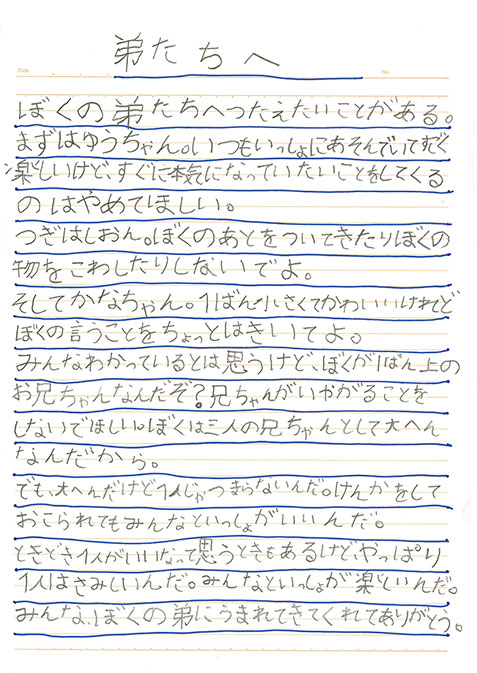 弟たちへ
ぼくの弟たちへつたえたいことがある。
まずはゆうちゃん。いつもいっしょにあそんでいてすごく
楽しいけど、すぐに本気になっていたいことをしてくる
のはやめてほしい。
つぎはしおん。ぼくのあとをついてきたりぼくの
物をこわしたりしないでよ。
そしてかなちゃん。1ばん小さくてかわいいけれど
ぼくの言うことをちょっとはきいてよ。
みんなわかっているとは思うけど、ぼくが1ばん上の
お兄ちゃんなんだぞ?兄ちゃんがいやがることを
しないでほしい。ぼくは三人の兄ちゃんとして大へん
なんだから。
でも、大へんだけど1人じゃつまらないんだ。けんかをして
おこられてもみんなといっしょがいいんだ。
ときどき1人がいいなって思うときもあるけど、やっぱり
1人はさみしいんだ。みんなといっしょが楽しいんだ。
みんな、ぼくの弟にうまれてきてくれてありがとう。